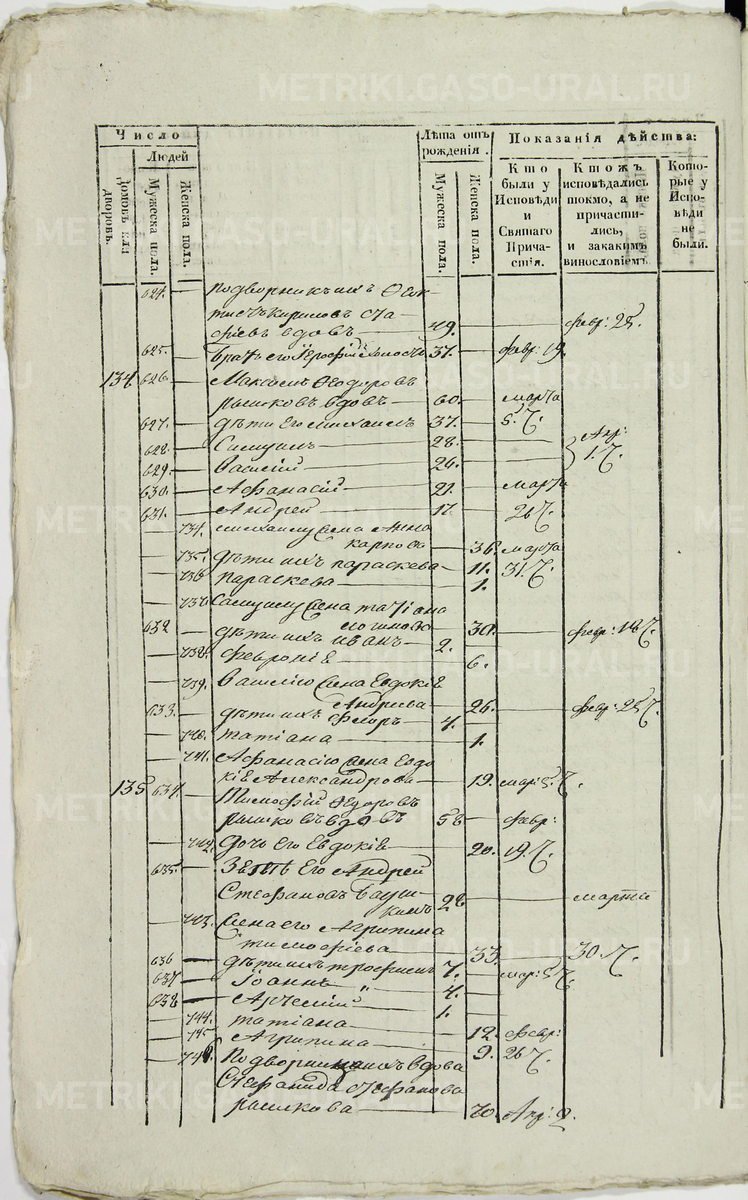 METRIKI.GASO-URAL.RU
Число
Лѣта отъ рожденія.
Показанія дѣйства:
Людей
Домовъ или дворовъ.
Мужеска пола.
Женска пола.
Мужеска пола.
Женска пола.
Кто были у Исповѣди и Святаго Причастія.
Ктожъ исповѣдались токмо, а не причастились, и закакимъ винословіемъ.
Которые у Исповѣди не были.
624. подворникъ ихъ
Кириловъ
вдовъ 49. февр: 25.
625. братъ его 37. февр: 19.
134. 626. Максимъ Ѳеодоровъ
вдовъ 60. марта
627. дѣти его Михаилъ 37. 5. Ч.
628. Самуилъ 28. Апр:
629. Василій 26. 1. Ч.
630. Афанасій 21. марта
631. Андрей 17. 26 Ч.
734. Михаилу жена Анна
карпова 36. марта
735. дѣти ихъ параскева 11. 31. Ч.
736 параскева 1.
737 Самуилу жена татіана
30. февр: 18 Ч.
632 дѣти ихъ иванъ 2.
738. февронія 6.
739. Василію жена Евдокія
Андреева 26. февр: 25 Ч.
633. дѣти ихъ 4.
740. татіана 1.
741. Афанасію жена Евдо
кія Александрова 19. мар: 5. Ч.
135 634. Тимофѣй Ѳедоровъ
вдовъ 58 февр:
742. дочь его Евдокія 20. 19. Ч.
635. Зять его Андрей
Стефановъ
28 марта
743. Жена его Агрипина
тимофѣева 33 30. Ч.
636 дѣти ихъ трофимъ 7. мар: 5 Ч.
637 Іоаннъ 4.
638 Арсеній 1.
744. татіана 12. февр:
745 Агрипина 9. 26 Ч.
746. вдова
Стефанида стефанова
70. Апр: 2.